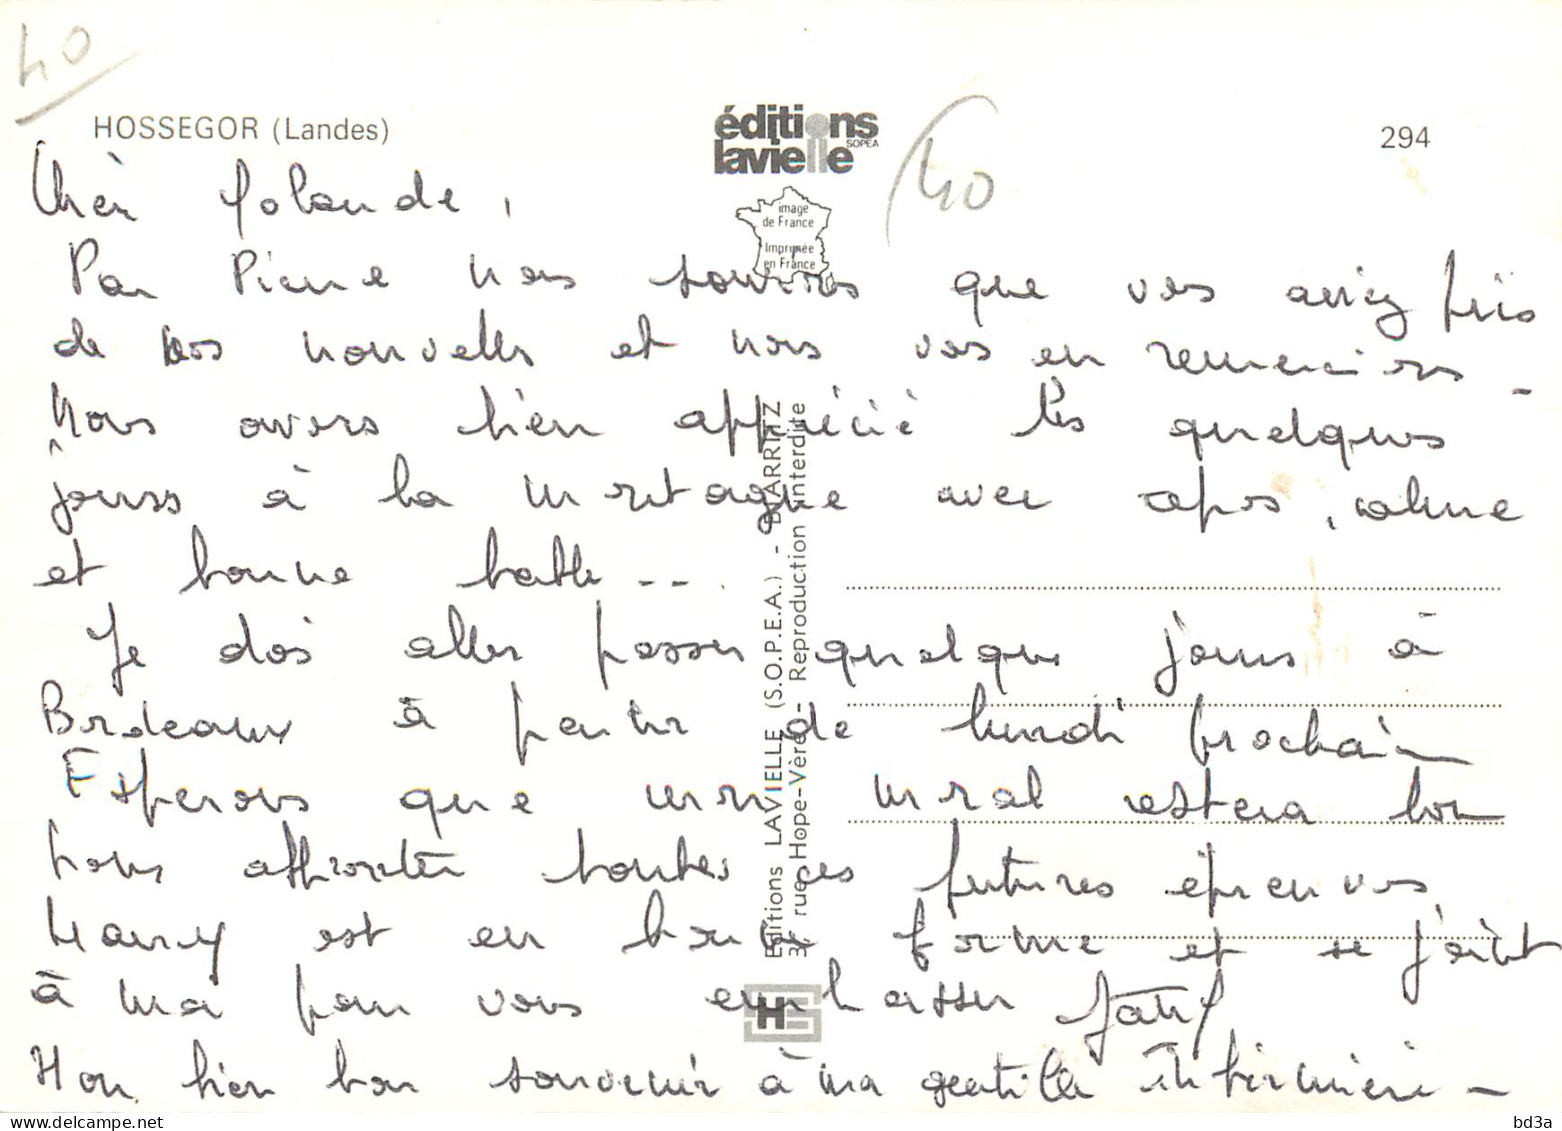 40
HOSSEGOR (Landes)
éditions
lavielle
SOPEA
40
294
image
de France
Imprimée
en France
Chère Yolande,
Par Pierre nous savions que vous aviez pris
de nos nouvelles et nous vous en remercions -
Nous avons bien apprécié les quelques
jours à la montagne avec repos, calme
et bonne table ...
Je dois aller passer quelques jours à
Bordeaux à partir de lundi prochain
Espérons que mon moral restera bon
pour affronter toutes ces futures épreuves
est en bonne forme et se joint
à moi pour vous embrasser
Mon bien bon souvenir à ma gentille infirmière -
Editions LAVIELLE (S.O.P.E.A.) - BIARRITZ
37 rue Hope-Vère - Reproduction interdite
H
delcampe.net
bd3a